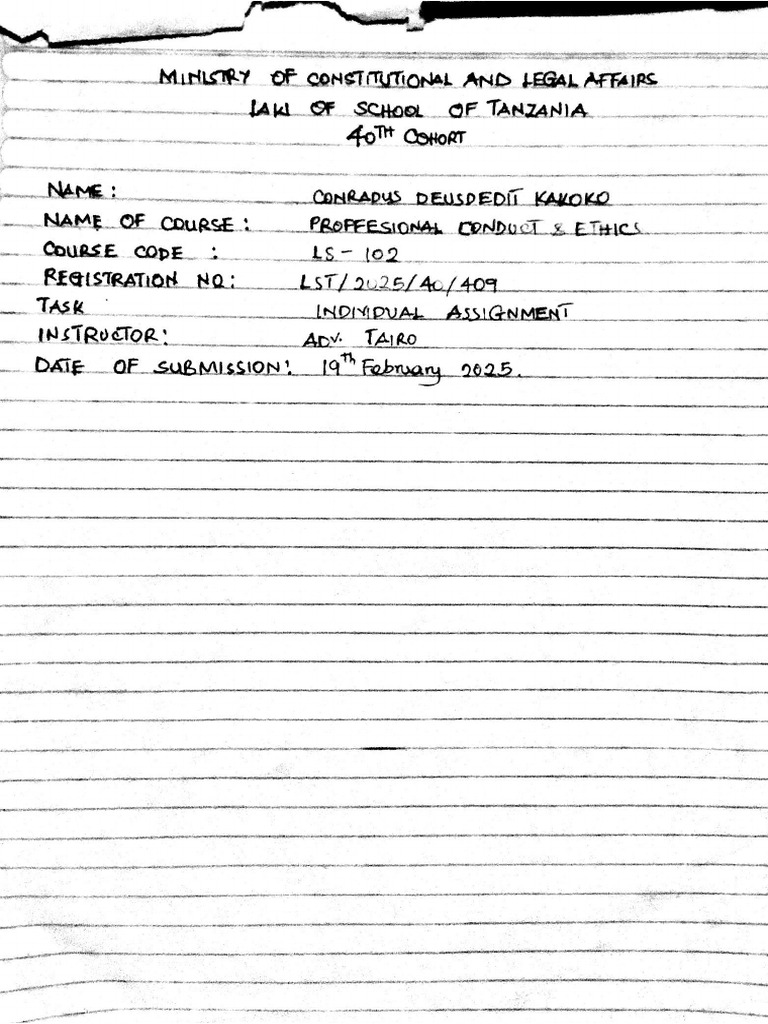 MINISTRY OF CONSTITUTIONAL AND LEGAL AFFAIRS
LAW OF SCHOOL OF TANZANIA
40TH COHORT
NAME: CONRADUS DEUSDEDIT KAKOKO
NAME OF COURSE: PROFFESIONAL CONDUCT & ETHICS
COURSE CODE : LS-102
REGISTRATION NO: LST/2025/40/409
TASK INDIVIDUAL ASSIGNMENT
INSTRUCTOR: ADV. TAIRO
DATE OF SUBMISSION: 19th February 2025.